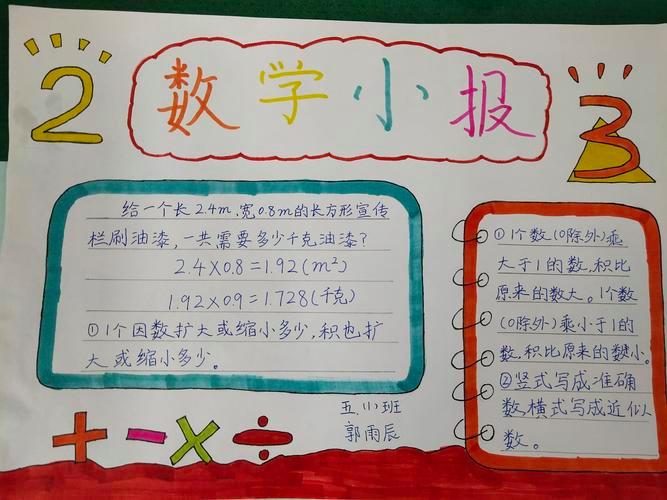 2
数学小报
3
给一个长2.4m,宽0.8m的长方形宣传
栏刷油漆,一共需要多少千克油漆?
2.4×0.8=1.92(m²)
1.92×0.9=1.728(千克)
①1个因数扩大或缩小多少,积也扩
大或缩小多少。
①1个数(0除外)乘
大于1的数,积比
原来的数大。1个数
(0除外)乘小于1的
数,积比原来的数小。
②竖式写成准确
数,横式写成近似
数。
五.(1)班
郭雨辰
+-×÷